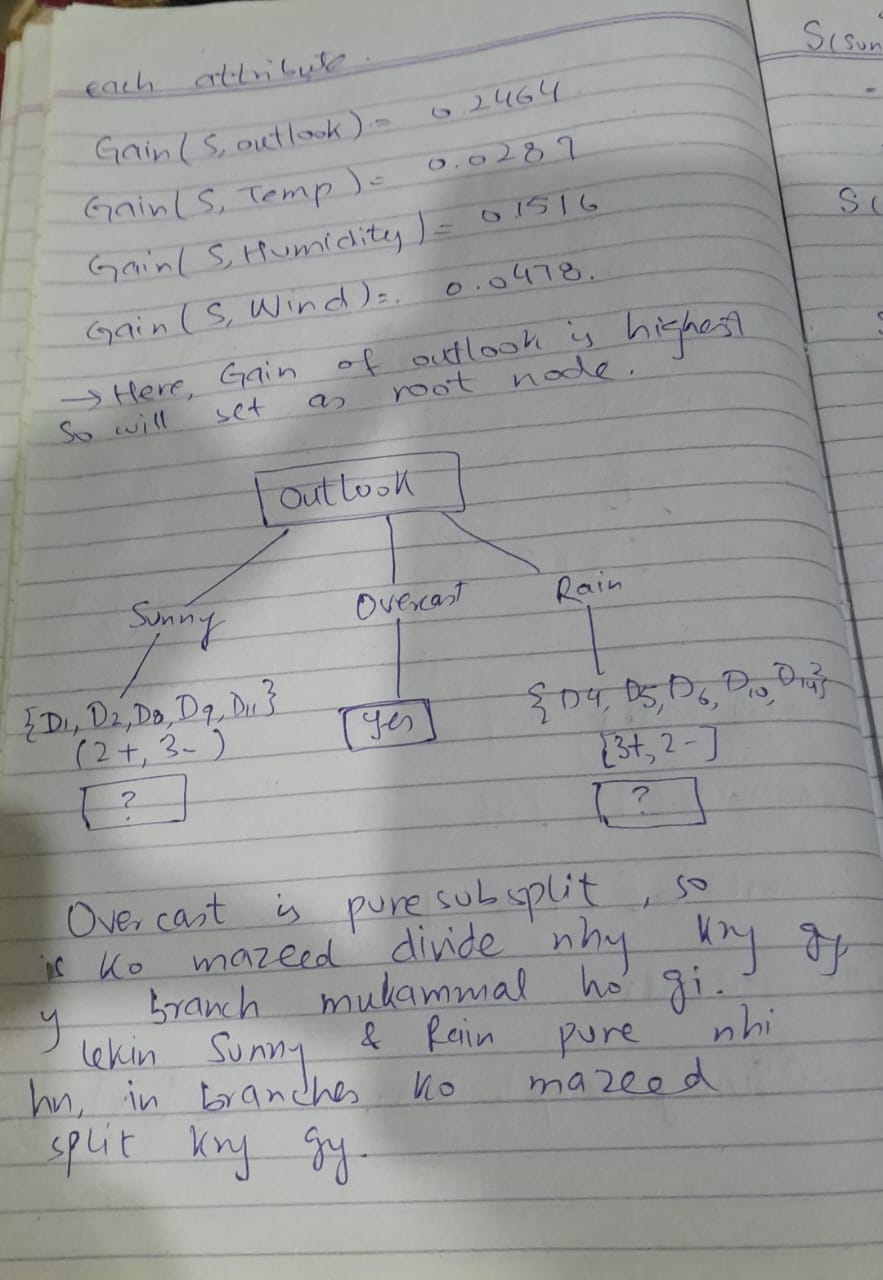 each attribute.
Gain(S, outlook) = 0.2464
Gain(S, Temp) = 0.0289
Gain(S, Humidity) = 0.1516
Gain(S, Wind) = 0.0478.
→ Here, Gain of outlook is highest
So will set as root node.
Outlook
Sunny Overcast Rain
{D1, D2, D8, D9, D11} Yes {D4, D5, D6, D10, D14}
(2+, 3-) [3+, 2-]
? ?
Overcast is pure subsplit, so
is ko mazeed divide nhy kry gy
y branch mukammal ho gi.
lekin Sunny & Rain pure nhi
hn, in branches ko mazeed
split kry gy.
S(sun
S(